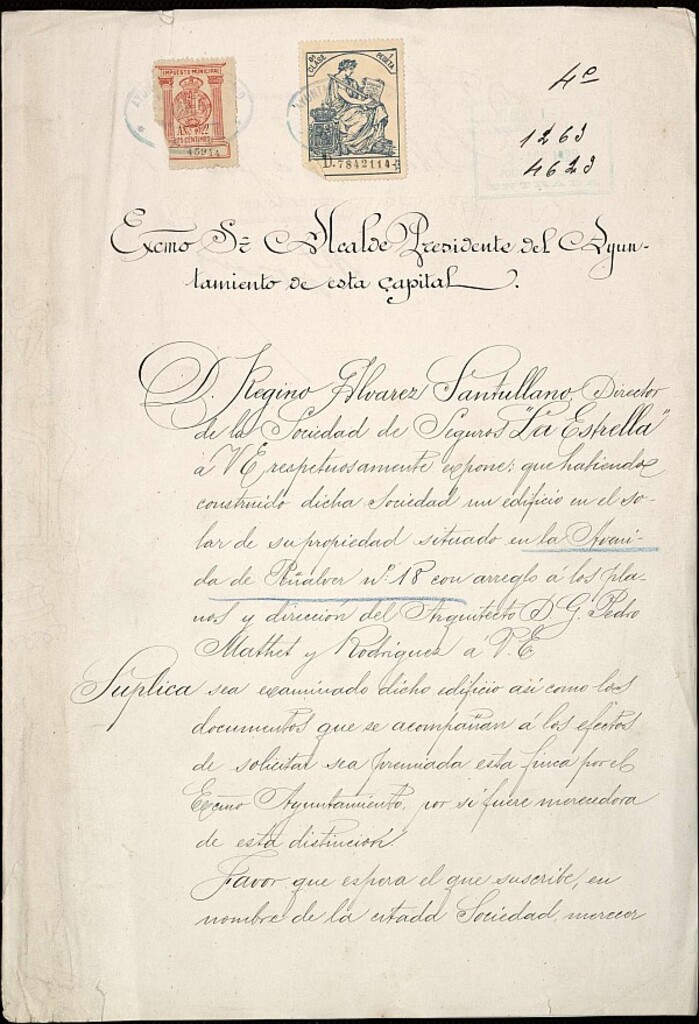 IMPUESTO MUNICIPAL
AÑO 1922
45914
8ª CLASE
1 PESETA
D.7842114
4º
1263
4623
Excmo Sr Alcalde Presidente del Ayun-
tamiento de esta Capital.
D. Regino Alvarez Santullano, Director
de la Sociedad de Seguros "La Estrella"
á V E respetuosamente expone: que habiendo
construido dicha Sociedad un edificio en el so-
lar de su propiedad situado en la Aveni-
da de Peñalver nº 18 con arreglo á los pla-
nos y dirección del Arquitecto D. G. Pedro
Mathet y Rodriguez á V. E
Suplica sea examinado dicho edificio así como los
documentos que se acompañan á los efectos
de solicitar sea premiada esta finca por el
Excmo Ayuntamiento, por si fuere merecedora
de esta distinción.
Favor que espera el que suscribe, en
nombre de la citada Sociedad, merecer